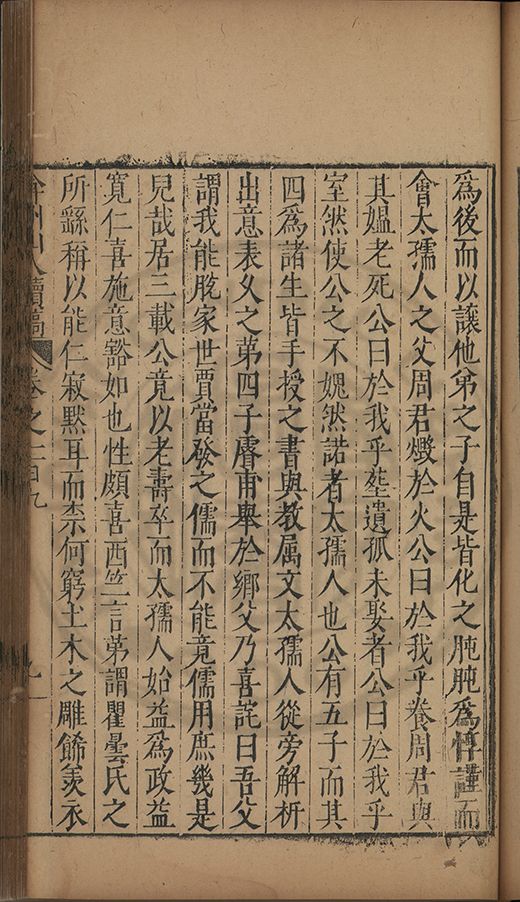 為後而以讓他弟之子自是皆化之肫肫為惇謹而
會太孺人之父周君燬於火公曰於我乎養周君與
其媼老死公曰於我乎塟遺孤未娶者公曰於我乎
室然使公之不媿然諾者太孺人也公有五子而其
四為諸生皆手授之書與教属文太孺人從旁解析
出意表久之苐四子膺甫舉於鄉父乃喜詫曰吾父
謂我能脫家世賈當發之儒而不能竟儒用庶幾是
兒哉居三載公竟以老壽卒而太孺人始益為政益
寛仁喜施意豁如也性頗喜西竺言苐謂瞿曇氏之
所繇稱以能仁寂黙耳而柰何窮土木之雕餙羨衣
弇州山人續稿 卷之一百九 九